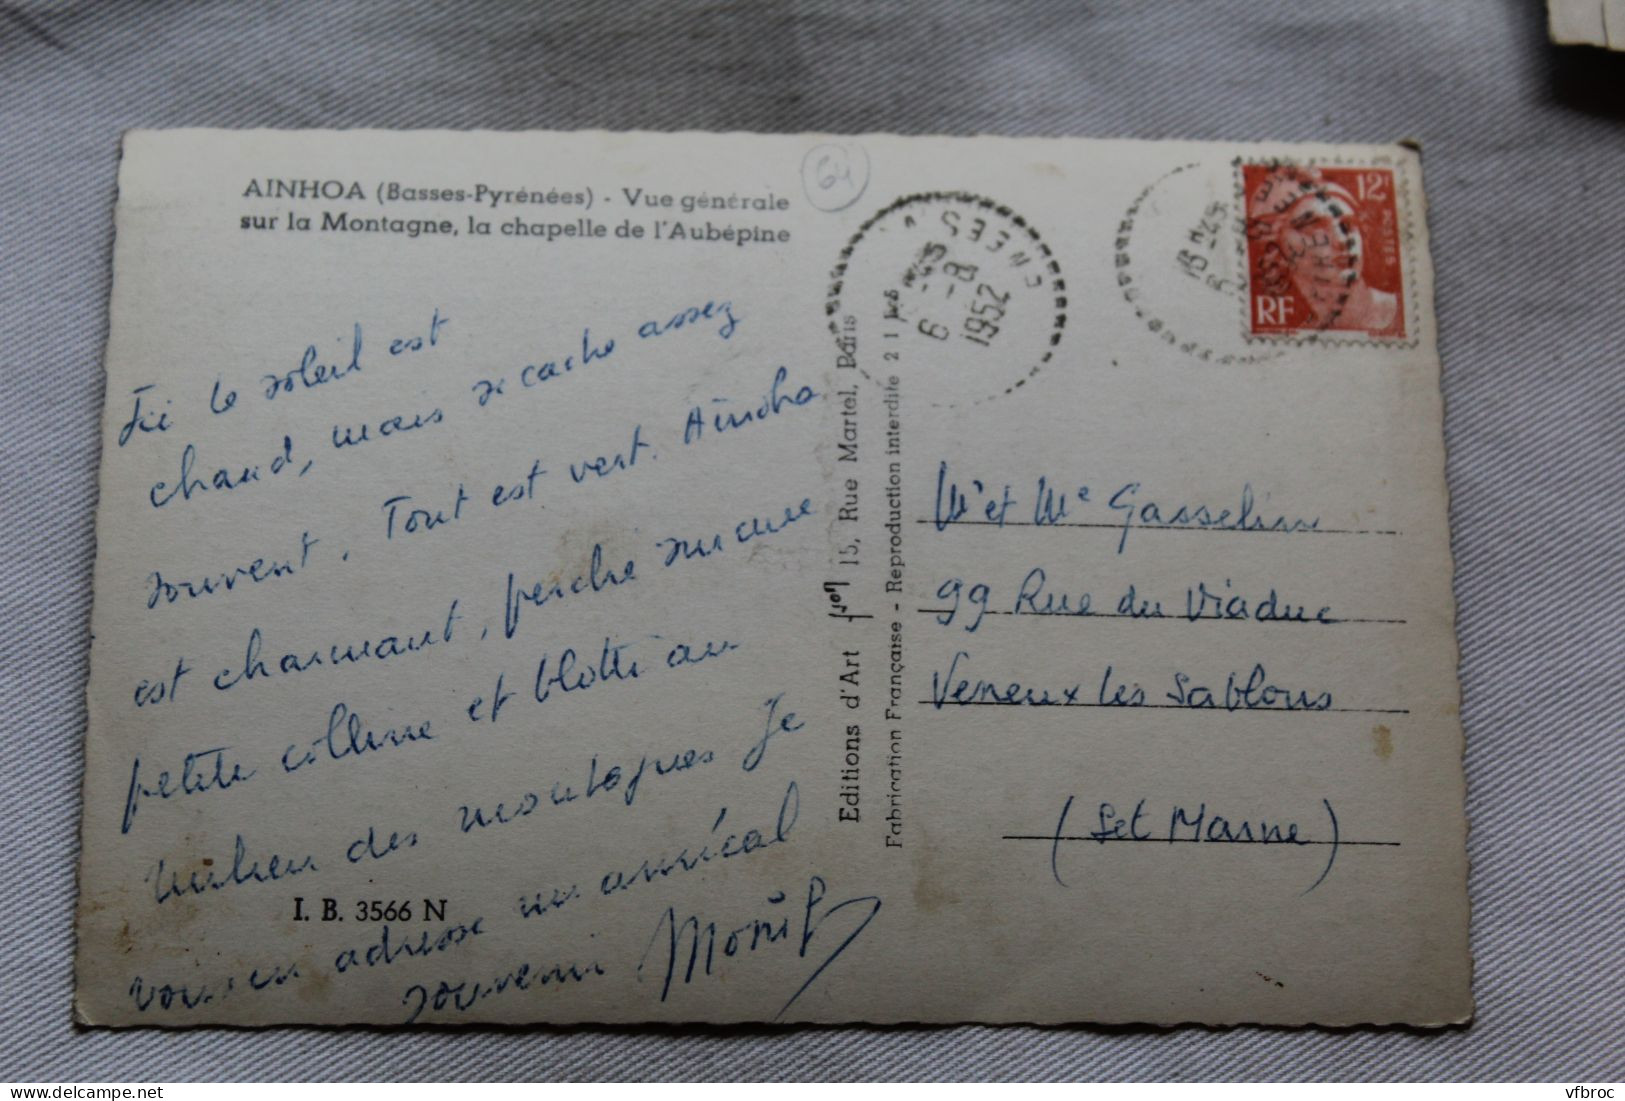 AINHOA (Basses-Pyrénées) - Vue générale
sur la Montagne, la chapelle de l'Aubépine
64
Ici le soleil est
chaud, mais se cache assez
souvent. Tout est vert. Ainoha
est charmant, perché sur une
petite colline et blotti au
milieu des montagnes Je
vous en adresse un amical
souvenir
I. B. 3566 N
Editions d'Art 15, Rue Martel, Paris
Fabrication Française - Reproduction interdite
6 -8
1952
16H45
12F
POSTES
RF
Mr et Me Gasselin
99 Rue du Viaduc
Veneux les Sablons
(Set Marne)
vfbroc